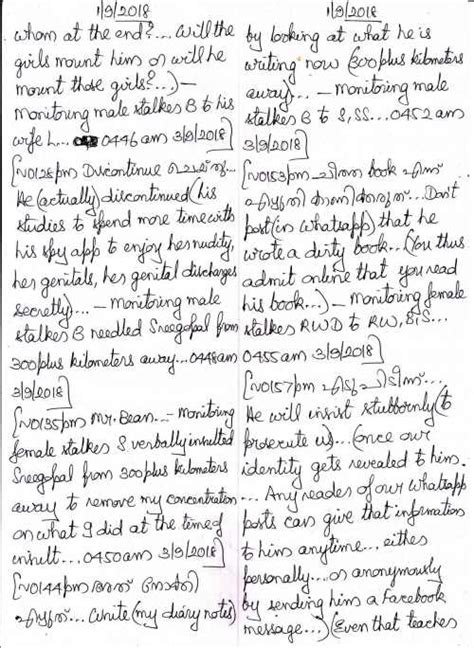 1/9/2018
whom at the end?... Will the
girls mount him or will he
mount those girls?...)—
monitoring male stalker B to his
wife L... 0446am 3/9/2018]
[VO128pm Discontinue
He (actually) discontinued (his
studies to spend more time with
his spy app to enjoy her nudity,
her genitals, her genital discharges
secretly)... — monitoring male
stalker B needled Sreegopal from
300plus kilometers away...0448am
3/9/2018]
[VO135pm Mr. Bean... — Monitoring
female stalker S verbally insulted
Sreegopal from 300plus kilometers
away to remove my concentration
on what I did at the time of
insult... 0450am 3/9/2018]
[VO144pm
... Write (my diary notes)
1/9/2018
by looking at what he is
writing now (300plus kilometers
away... — monitoring male
stalker B to S, SS... 0452am
3/9/2018]
[VO153pm book
... Don't
post (in whatsapp) that he
wrote a dirty book... (You thus
admit online that you read
his book...) — monitoring female
stalker RWD to RW, BIS...
0455am 3/9/2018]
[VO157pm
He will insist stubbornly (to
prosecute us)... (once our
identity gets revealed to him.
... Any reader of our Whatsapp
posts can give that information
to him anytime... either
personally... or anonymously
by sending him a Facebook
message...) (Even that teacher